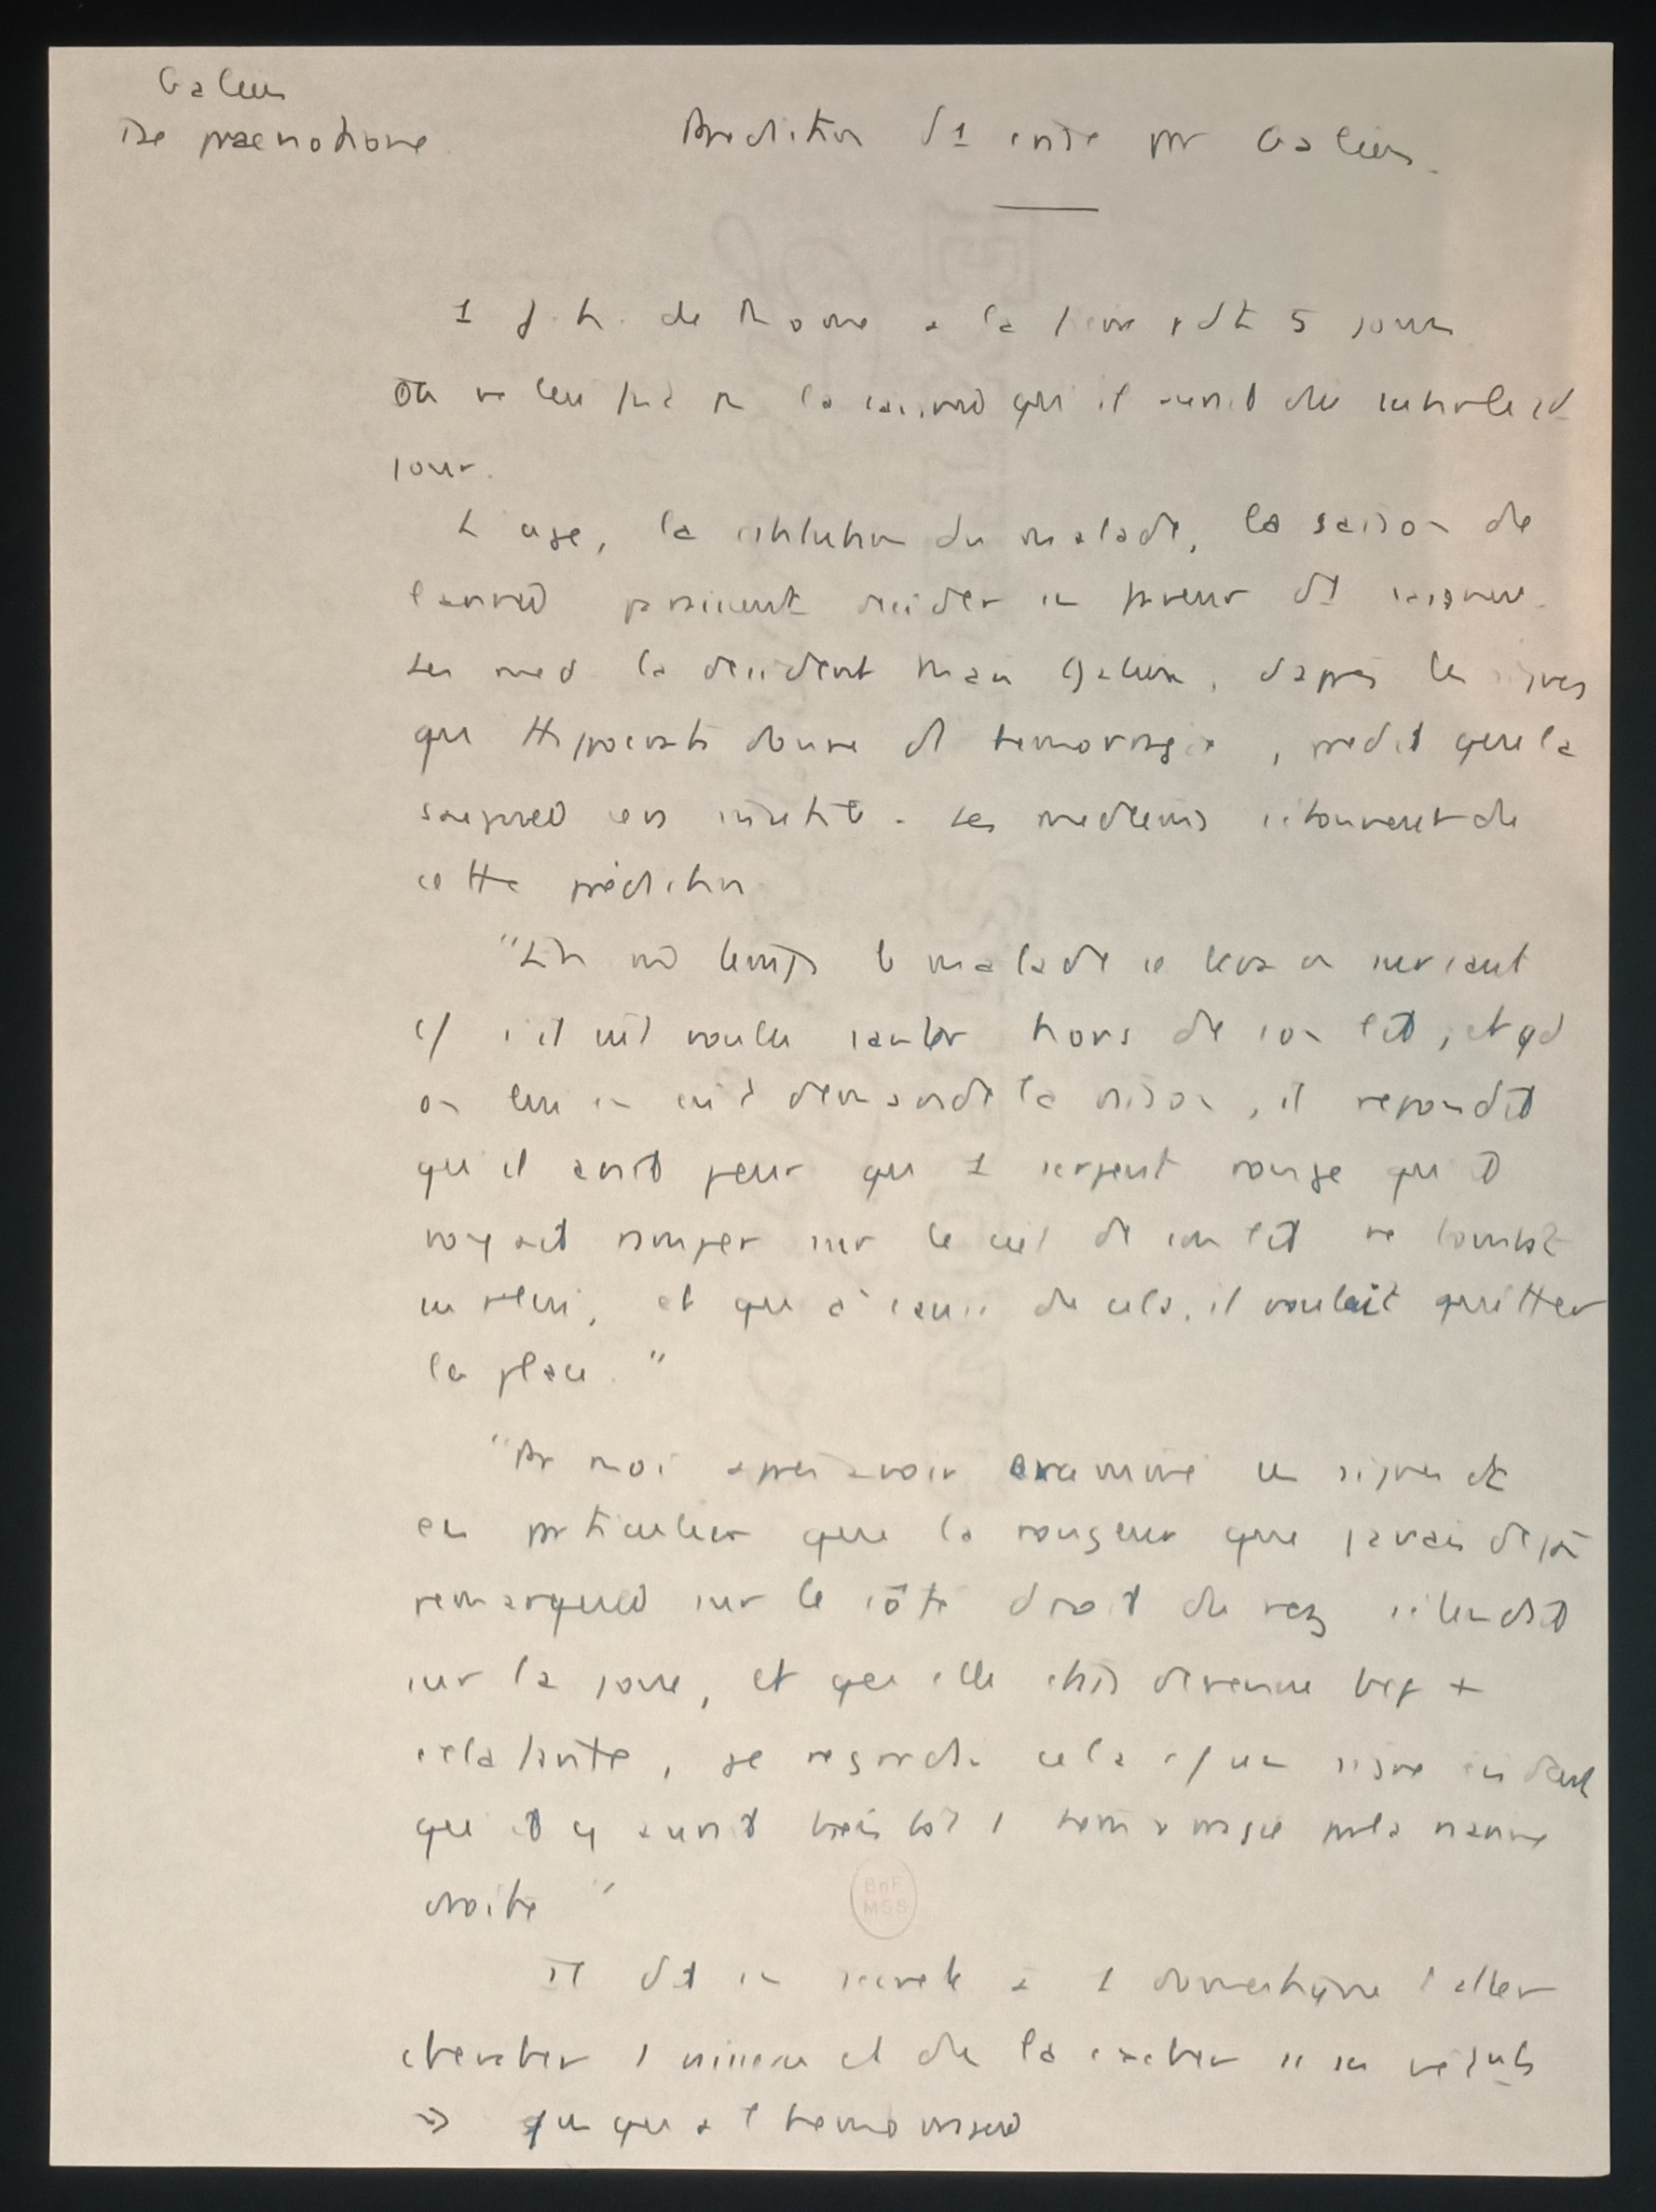 Galien
De praenotione
Prediction d'1 crise par Galien.
1 j. h. de Rome a la fièvre pdt 5 jours
On ne lui fit pas la saignée qu'il aurait du
jour.
L'age, la constitution du malade, la saison de
l'année pouvaient decider en faveur de saignee.
Les med la decident mais Galien, d'après les signes
que Hippocrate donne de hemorragie, predit que la
saignée sera inutile. Les medecins s'etonnerent de
cette prédiction
"En mê temps le malade se leva en
c/ s'il eut voulu sauter hors de son lit, et qd
on lui en eut demandé la raison, il repondit
qu'il avait peur que 1 serpent rouge qu'il
voyait ramper sur le ciel de son lit ne tombat
sur lui, et que à cause de cela, il voulait quitter
la place."
"Pr moi apres avoir examiné les signes et
en particulier que la rougeur que j'avais dejà
remarquée sur le côté droit du nez s'etendait
sur la joue, et qu'elle etait devenue bcp +
eclatante, je regardai cela c/ un signe evident
qu'il y aurait bientot 1 hemorragie par la narine
droite"
Il dit en secret à 1 domestique d'aller
chercher 1 vaisseau et de la cacher ss ses
⇒ jusqu'a l'hemorragie
BnF
MSS